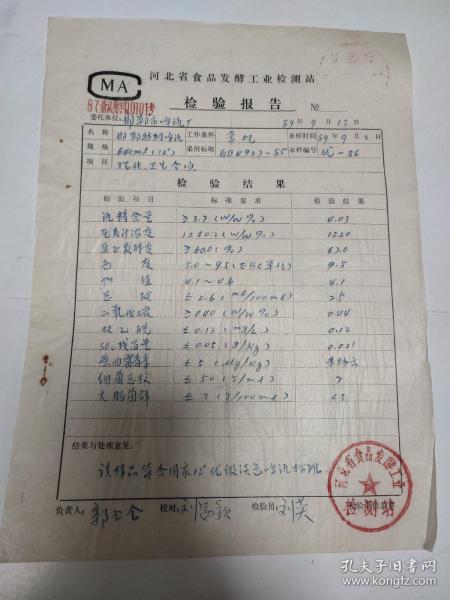 河北省食品发酵工业检测站
MA
检验报告 №
委托单位: 邯郸市啤酒厂 89年9月13日
名称 邯郸特制啤酒 工作条件 常规 来样时间 89年9月2日
规格 640ml(12°) 采用标准 GB4927-85 来样编号 优-86
项目 理化、卫生全项
检验结果
检验项目 标准要求 检验结果
酒精含量 ≥3.7(w/w%) 4.03
原麦汁浓度 12±0.2(w/w%) 12.20
真正发酵度 ≥60.0(%) 62.0
色度 5.0~9.5(EBC单位) 9.5
PH值 4.1~4.6 4.1
总酸 ≤2.6(ml/100ml) 2.5
二氧化碳 ≥0.40(w/w%) 0.44
双乙酰 ≤0.13(mg/L) 0.12
SO₂残留量 ≤0.05(g/kg) 0.021
黄曲霉毒素 ≤5(μg/kg) 未检出
细菌总数 ≤50(个/ml) 7
大肠菌群 ≤3(个/100ml) <3
结果与处理意见:
该样品符合国家12°优级淡色啤酒标准
河北省食品发酵工业
检测站
负责人: 校对: 检验员: 刘英
孔夫子旧书网